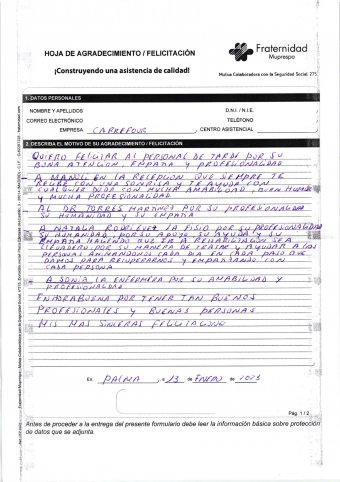 HOJA DE AGRADECIMIENTO / FELICITACIÓN
Fraternidad
Muprespa
¡Construyendo una asistencia de calidad!
Mutua Colaboradora con la Seguridad Social 275
1. DATOS PERSONALES
NOMBRE Y APELLIDOS
D.N.I. / N.I.E.
CORREO ELECTRÓNICO
TELÉFONO
EMPRESA CARREFOUR, CENTRO ASISTENCIAL
2. DESCRIBA EL MOTIVO DE SU AGRADECIMIENTO / FELICITACIÓN
QUIERO FELICITAR AL PERSONAL DE TARDE POR SU
ATENCION, EMPATIA Y PROFESIONALIDAD
- A EN LA RECEPCION QUE SIEMPRE TE
RECIBE CON UNA SONRISA Y TE AYUDA CON
CUALQUIER DUDA CON MUCHA AMABILIDAD, BUEN HUMOR
Y MUCHA PROFESIONALIDAD
AL DR TORRES MARTINEZ POR SU PROFESIONALIDAD
SU HUMANIDAD Y SU EMPATIA
- A LA FISIO POR SU PROFESIONALIDAD
SU HUMANIDAD, POR SU APOYO, SU AYUDA Y SU
EMPATIA HACIENDO QUE LA REHABILITACION SEA
POR SU MANERA DE TRATAR Y AYUDAR A LOS
PERSONAS ANIMANDONOS CADA DIA EN CADA PASO QUE
DAMOS PARA RECUPERARNOS Y EMPATIZANDO CON
CADA PERSONA
- A SONIA LA ENFERMERA POR SU AMABILIDAD Y
PROFESIONALIDAD
ENHORABUENA POR TENER TAN BUENOS
PROFESIONALES Y BUENAS PERSONAS
MIS MAS SINCERAS
En PALMA, a 13 de ENERO de 2023
Pág. 1 / 2
Antes de proceder a la entrega del presente formulario debe leer la información básica sobre protección
de datos que se adjunta.